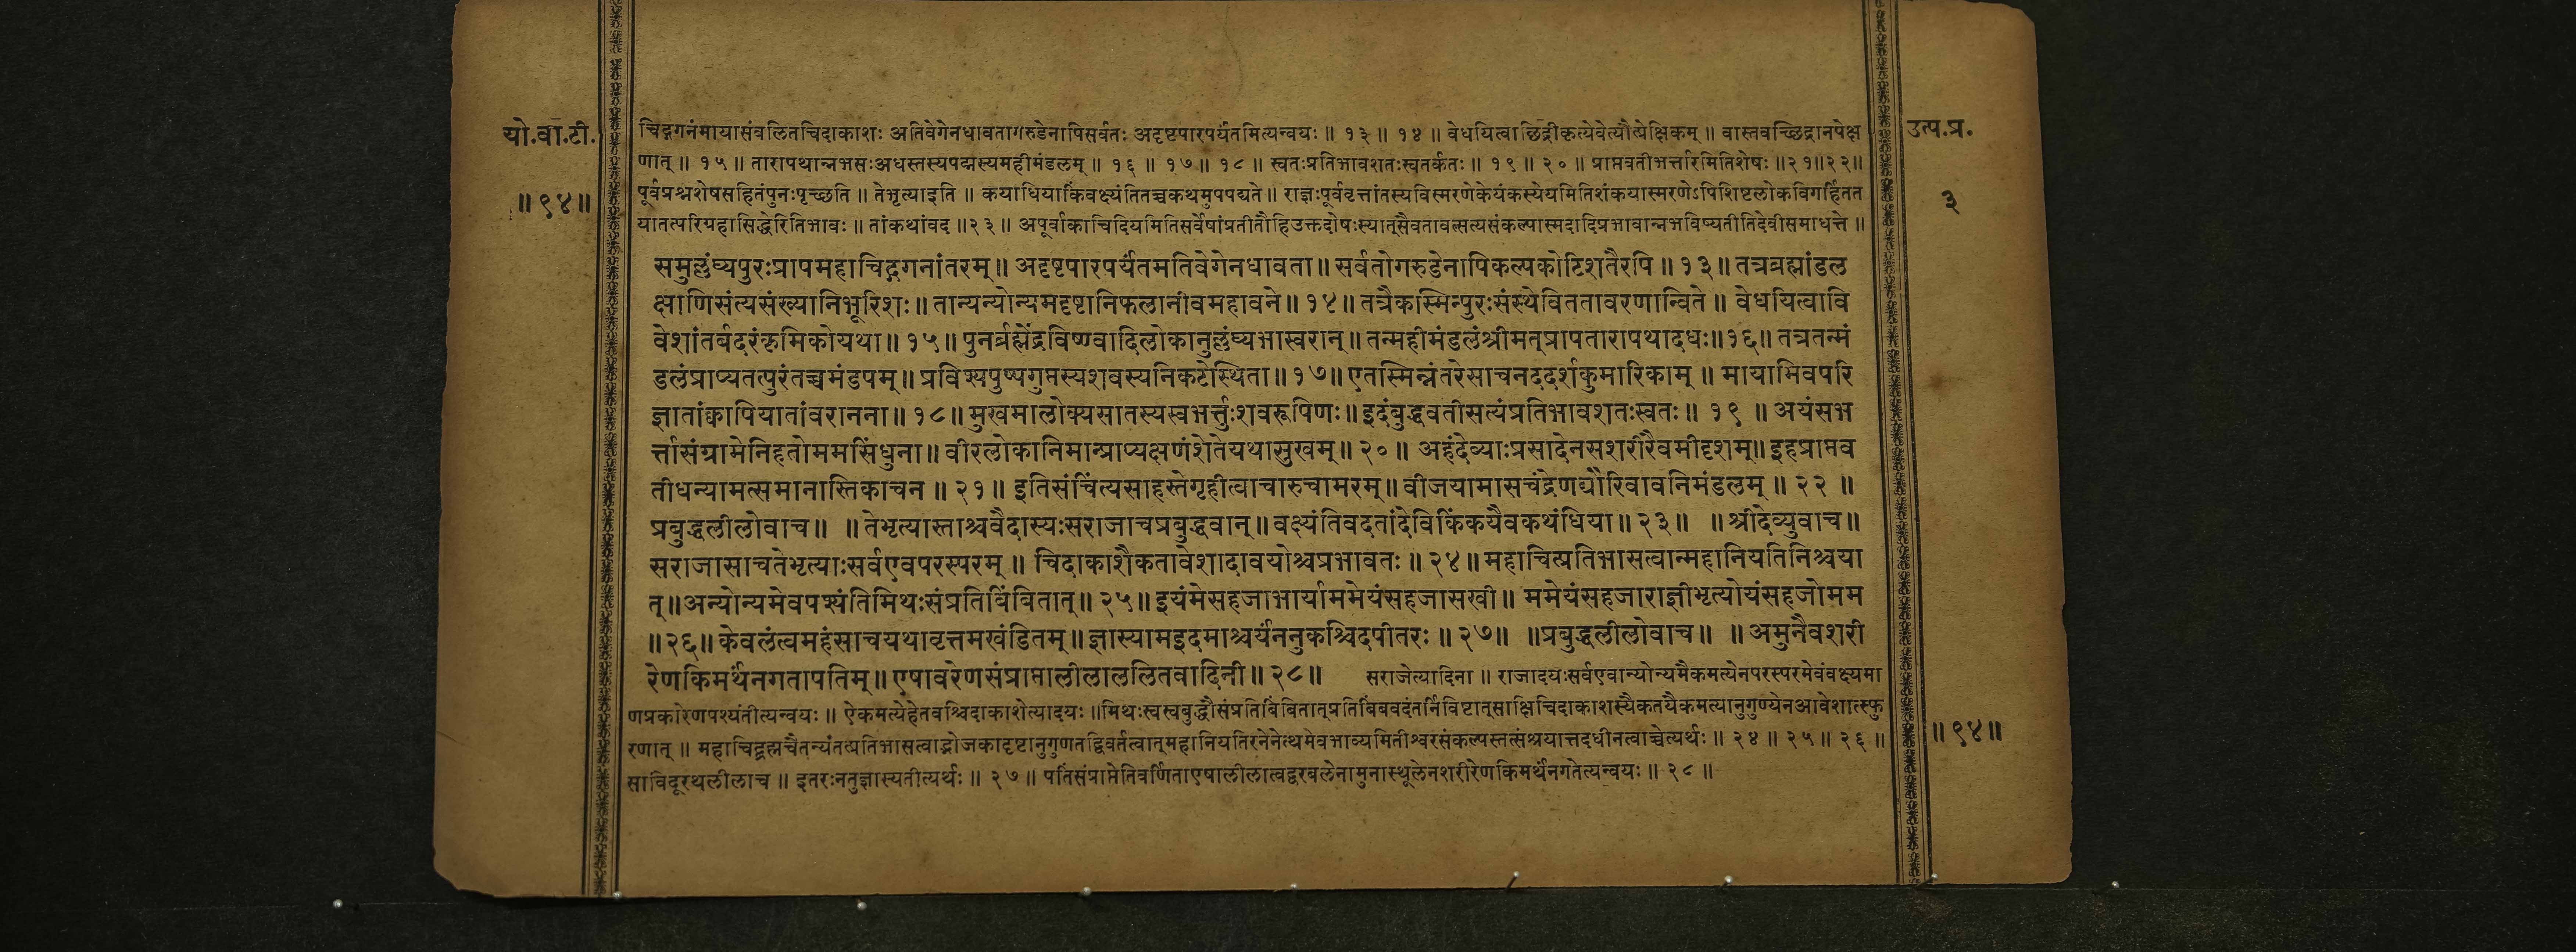 यो.वा.टी.
॥९४॥
उत्प.प्र.
३
चिद्गगनंमायासंवलितचिदाकाशः अतिवेगेनधावतागरुडेनापिसर्वतः अदृष्टपारपर्यंतमित्यन्वयः ॥ १३ ॥ १४ ॥ वेधयित्वाछिद्रीकृत्येवेत्यौत्प्रेक्षिकम् ॥ वास्तवच्छिद्रानपेक्ष
णात् ॥ १५ ॥ तारापथान्नभसःअधस्तस्यपद्मस्यमहीमंडलम् ॥ १६ ॥ १७ ॥ १८ ॥ स्वतःप्रतिभावशतःस्वतर्कतः ॥ १९ ॥ २० ॥ प्राप्तवतीभर्त्तारमितिशेषः ॥२१॥२२॥
पूर्वप्रश्नशेषसहितंपुनःपृच्छति ॥ तेभृत्याइति ॥ कयाधियाकिंवक्ष्यंतितच्चकथमुपपद्यते ॥ राज्ञःपूर्ववृत्तांतस्यविस्मरणेकेयंकस्येयमितिशंकयास्मरणेऽपिशिष्टलोकविगर्हितत
यातत्परिग्रहासिद्धेरितिभावः ॥ तांकथांवद ॥२३॥ अपूर्वाकाचिदियमितिसर्वेषांप्रतीतौहिउक्तदोषःस्यात्सैवतावत्सत्यसंकल्पास्मदादिप्रभावान्नभविष्यतीतिदेवीसमाधत्ते ॥
समुल्लंघ्यपुरःप्रापमहाचिद्गगनांतरम् ॥ अदृष्टपारपर्यंतमतिवेगेनधावता ॥ सर्वतोगरुडेनापिकल्पकोटिशतैरपि ॥ १३ ॥ तत्रब्रह्मांडल
क्षाणिसंत्यसंख्यानिभूरिशः ॥ तान्यन्योन्यमदृष्टानिफलानीवमहावने ॥ १४ ॥ तत्रैकस्मिन्पुरःसंस्थेवितताावरणान्विते ॥ वेधयित्वावि
वेशांतर्बदरंकृमिकोयथा ॥ १५ ॥ पुनर्ब्रह्मेंद्रविष्ण्वादिलोकानुल्लंघ्यभास्वरान् ॥ तन्महीमंडलंश्रीमत्प्रापतारापथादधः ॥१६॥ तत्रतन्मं
डलंप्राप्यतत्पुरंतच्चमंडपम् ॥ प्रविश्यपुष्पगुप्तस्यशवस्यनिकटेस्थिता ॥ १७ ॥ एतस्मिन्नंतरेसाचनददर्शकुमारिकाम् ॥ मायामिवपरि
ज्ञातांक्वापियातांवरानना ॥ १८ ॥ मुखमालोक्यसातस्यस्वभर्त्तुःशवरूपिणः ॥ इदंबुद्धवतीसत्यंप्रतिभावशतःस्वतः ॥ १९ ॥ अयंसभ
र्त्तासंग्रामेनिहतोममसिंधुना ॥ वीरलोकानिमान्प्राप्यक्षणंशेतेयथासुखम् ॥ २० ॥ अहंदेव्याःप्रसादेनसशरीरैवमीदृशम् ॥ इहप्राप्तव
तीधन्यामत्समानास्तिकाचन ॥ २१ ॥ इतिसंचिंत्यसाहस्तेगृहीत्वाचारुचामरम् ॥ वीजयामासचंद्रेणद्यौरिवावनिमंडलम् ॥ २२ ॥
प्रबुद्धलीलोवाच ॥ ॥ तेभृत्यास्ताश्चवैदास्यःसराजाचप्रबुद्धवान् ॥ वक्ष्यंतिवदतांदेविकिंकयैवकथंधिया ॥ २३ ॥ ॥ श्रीदेव्युवाच ॥
सराजासाचतेभृत्याःसर्वएवपरस्परम् ॥ चिदाकाशैकतावेशादावयोश्चप्रभावतः ॥ २४ ॥ महाचित्प्रतिभासत्वान्महानियतिनिश्चया
त् ॥ अन्योन्यमेवपश्यंतिमिथःसंप्रतिबिंबितात् ॥ २५ ॥ इयंमेसहजाभार्याममेयंसहजासखी ॥ ममेयंसहजाराज्ञीभृत्योयंसहजोमम
॥ २६ ॥ केवलंत्वमहंसाचयथावृत्तमखंडितम् ॥ ज्ञास्यामइदमाश्चर्यंननुकश्चिदपीतरः ॥ २७ ॥ ॥ प्रबुद्धलीलोवाच ॥ ॥ अमुनैवशरी
रेणकिमर्थंनगतापतिम् ॥ एषावरेणसंप्राप्तालीलाललितवादिनी ॥ २८ ॥
सराजेत्यादिना ॥ राजादयःसर्वएवान्योन्यमैकमत्येनपरस्परमेवंवक्ष्यमा
णप्रकारेणपश्यंतीत्यन्वयः ॥ ऐकमत्येहेतवश्चिदाकाशेत्यादयः ॥मिथःस्वस्वबुद्धौसंप्रतिबिंबितात्प्रतिबिंबवदंतर्निविष्टात्साक्षिचिदाकाशस्यैकतयैकमत्यानुगुण्येनआवेशात्स्फु
रणात् ॥ महाचिद्ब्रह्मचैतन्यंतत्प्रतिभासत्वाद्भोजकादृष्टानुगुणतद्विवर्तत्वात्महानियतिरनेनेत्थमेवभाव्यमितीश्वरसंकल्पस्तत्संश्रयात्तदधीनत्वाच्चेत्यर्थः ॥ २४ ॥ २५ ॥ २६ ॥
साविदूरथलीलाच ॥ इतरःनतुज्ञास्यतीत्यर्थः ॥ २७ ॥ पतिंसंप्राप्तेतिवर्णिताएषालीलात्वद्वरबलेनामुनास्थूलेनशरीरेणकिमर्थंनगतेत्यन्वयः ॥ २८ ॥
॥९४॥